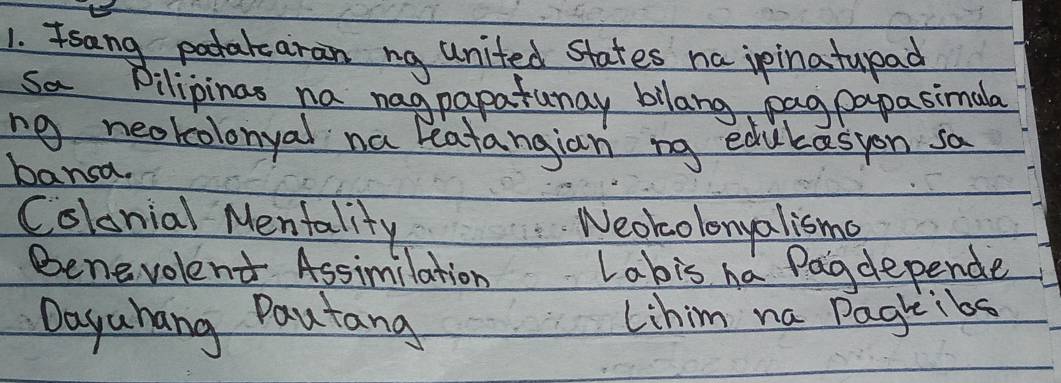 1. Isang patakaran ng United States na ipinatupad
sa Pilipinas na nagpapatunay bilang pagpapasimula
ng neokolonyal na katangian ng edukasyon sa
bansa.
Colonial Mentality Neokolonyalismo
Benevolent Assimilation Labis na Pagdepende
Dayuhang Pautang Lihim na Pagkilos